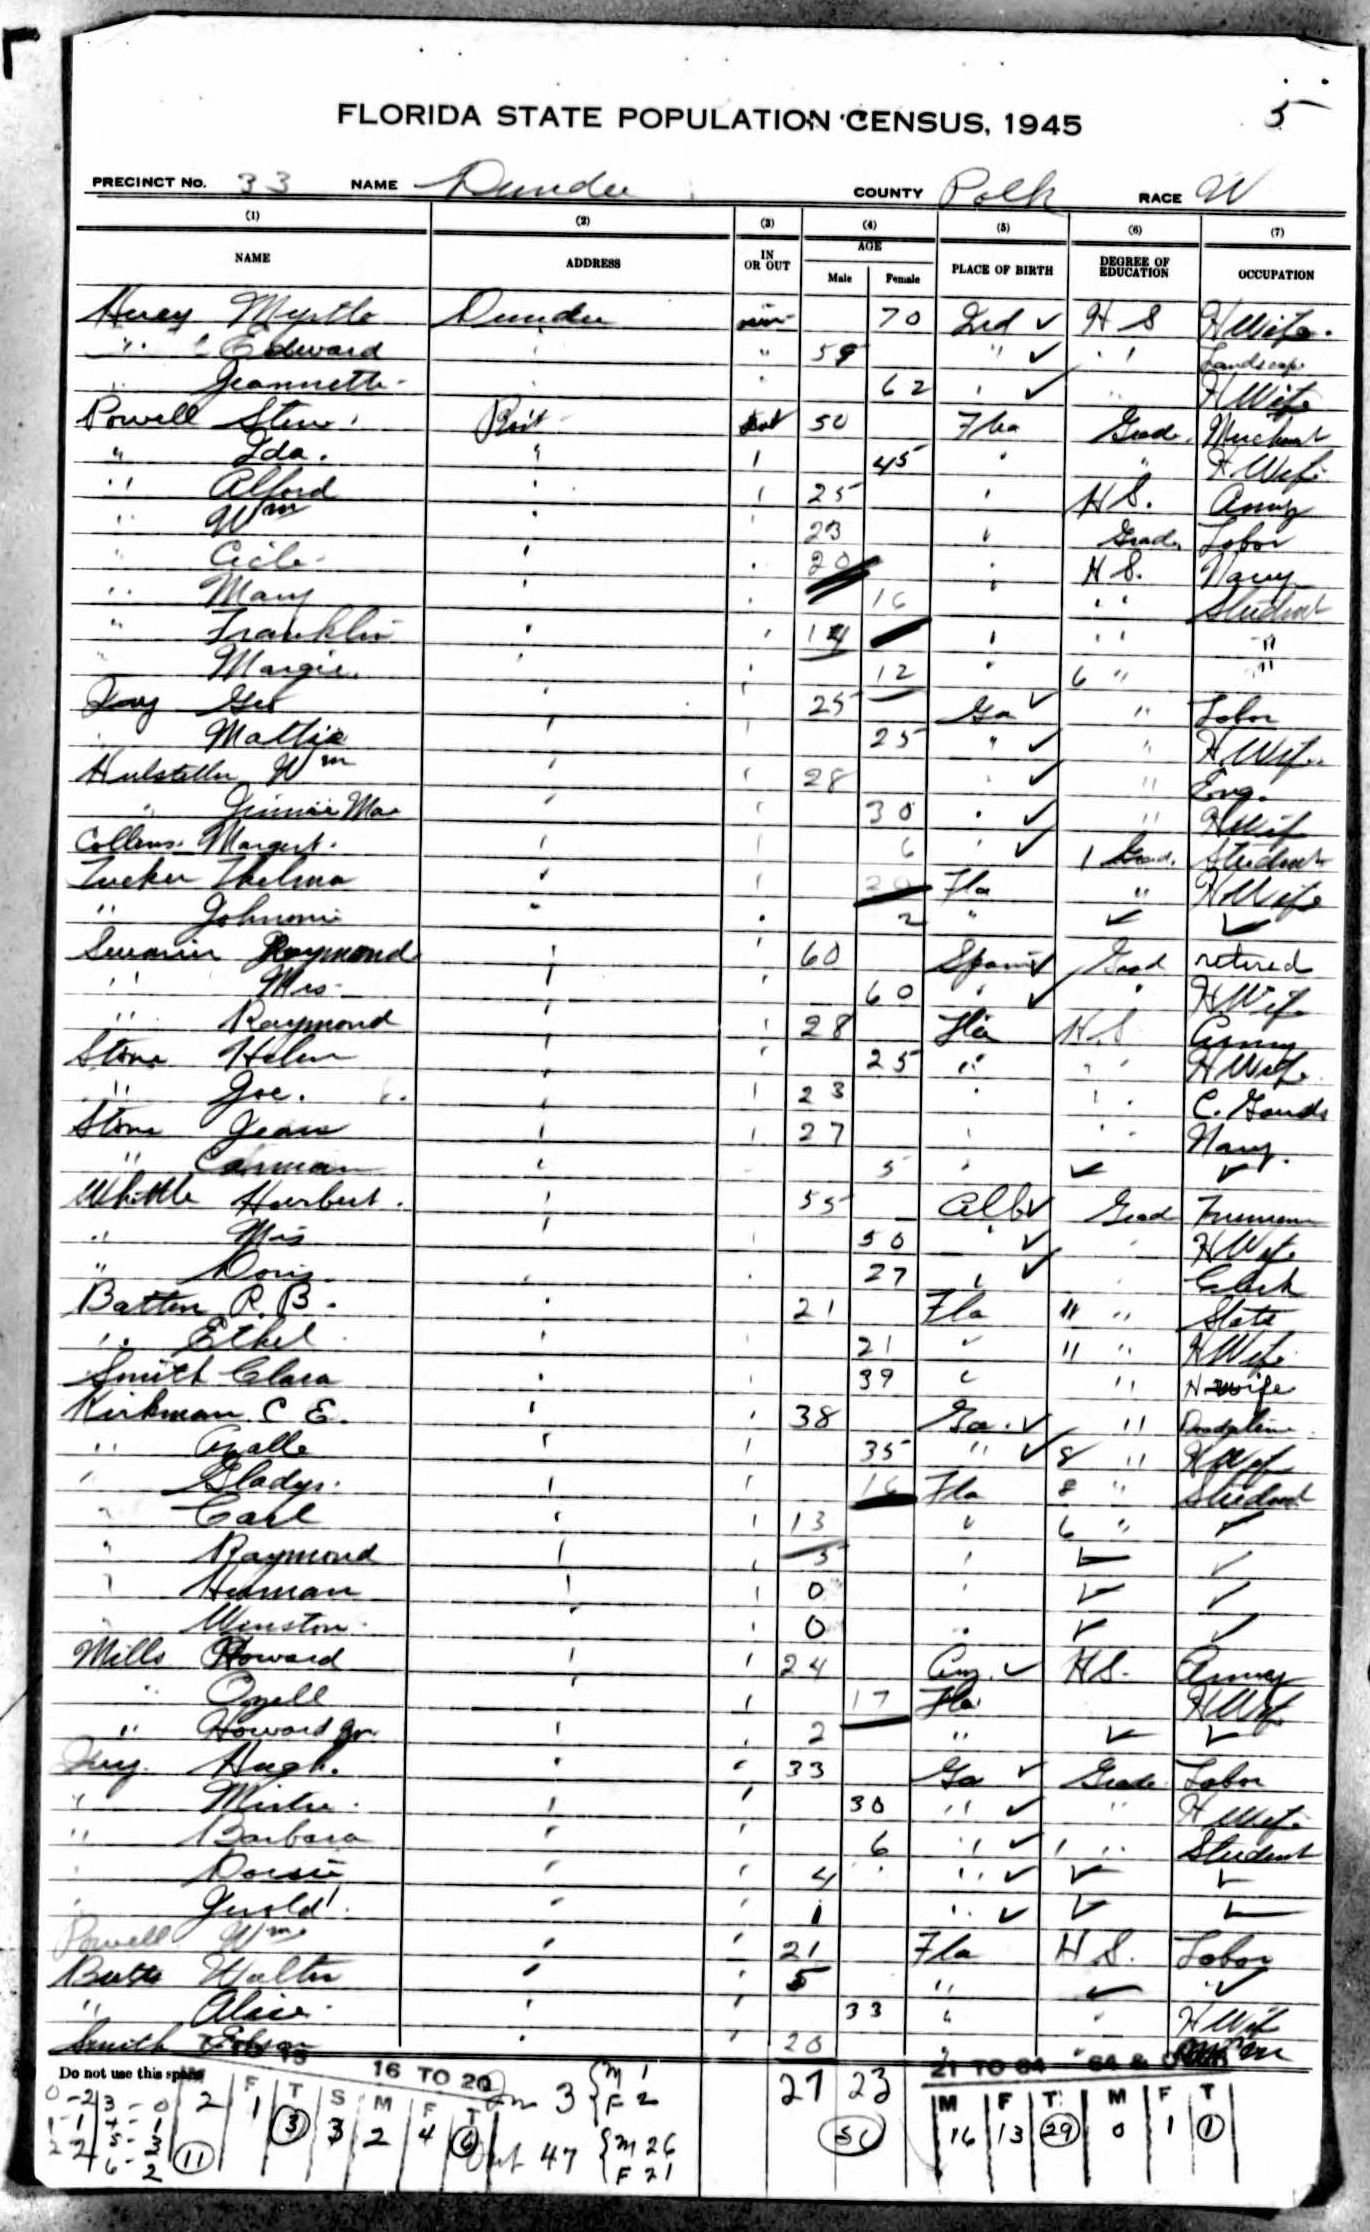 5
FLORIDA STATE POPULATION CENSUS, 1945
PRECINCT No. 33 NAME Dundee COUNTY Polk RACE W
(1) (2) (3) (4) (5) (6) (7)
NAME ADDRESS IN OR OUT AGE Male Female PLACE OF BIRTH DEGREE OF EDUCATION OCCUPATION
Myrtle Dundee 70 Ind ✓ H S H Wife.
" Edward " " ✓ " Landscape
" Jeannette 62 ✓ " H Wife
Powell Steve Out 50 Fla Grade. Merchant
" Ida. " 45 " " H. Wife
" Alford 25 " H S. Army
" Wm 23 " Grade. Labor
" 20 " H S. Navy
" Mary 16 " " Student
" Franklin 14 " " "
" Margie. 12 " 6 " "
Geo 25 Ga ✓ " Labor
" Mattie 25 " ✓ " H. Wife.
Wm 28 " ✓ " Eng.
" Jimmie Mae 30 " ✓ " H Wife
Collins. Margert. 6 " ✓ 1 Grad. Student
Tucker Thelma 20 Fla " H Wife
" Johnnie 2 " ✓ ✓
Raymond 60 Spain ✓ Grad retired
" Mrs 60 " ✓ " H Wife
" Raymond 28 Fla H.S Army
Stone Helen 25 " " H Wife
" Joe. 23 " " C. Gards
Stone 27 " " Navy.
" 5 " ✓ ✓
Whittle Herbert. 55 Alb ✓ Grad
" Mrs 50 " ✓ " H Wife
" Doris 27 " ✓ " Clerk
Batten R. B. 21 Fla 11 " State
" Ethel 21 " 11 " H Wife
Smith Clara 39 " 11 H wife
Kirkman C E. 38 Ga. ✓ 11
" 35 " ✓ 8 " H Wife
" Gladys. 16 Fla 8 " Student
" Carl 13 " 6 " ✓
" Raymond 5 " ✓ ✓
" Herman 0 " ✓ ✓
" Winston 0 " ✓ ✓
Mills Howard 24 ✓ H S. Army
" Ozell 17 Fla H Wife
" Howard Jr. 2 " ✓ ✓
Hugh. 33 Ga ✓ Grade Labor
" 30 " ✓ " H Wife
" Barbara 6 " ✓ 1 " Student
" 4 " ✓ ✓ ✓
" Jerold 1 " ✓ ✓ ✓
Powell Wm 21 Fla H S. Labor
Butts Walter 5 " ✓ ✓
" Alice 33 " " H Wife
Smith 20
Do not use this space 16 TO 20 21 TO 64 64 &
F T S M F T In 3 { M 1 F 2 27 23 M F T M F T
0-2 3-0 2 1 3 3 2 4 6 Out 47 { M 26 F 21 50 16 13 29 0 1 1
1-1 4-1
2-2 5-3 11
6-2